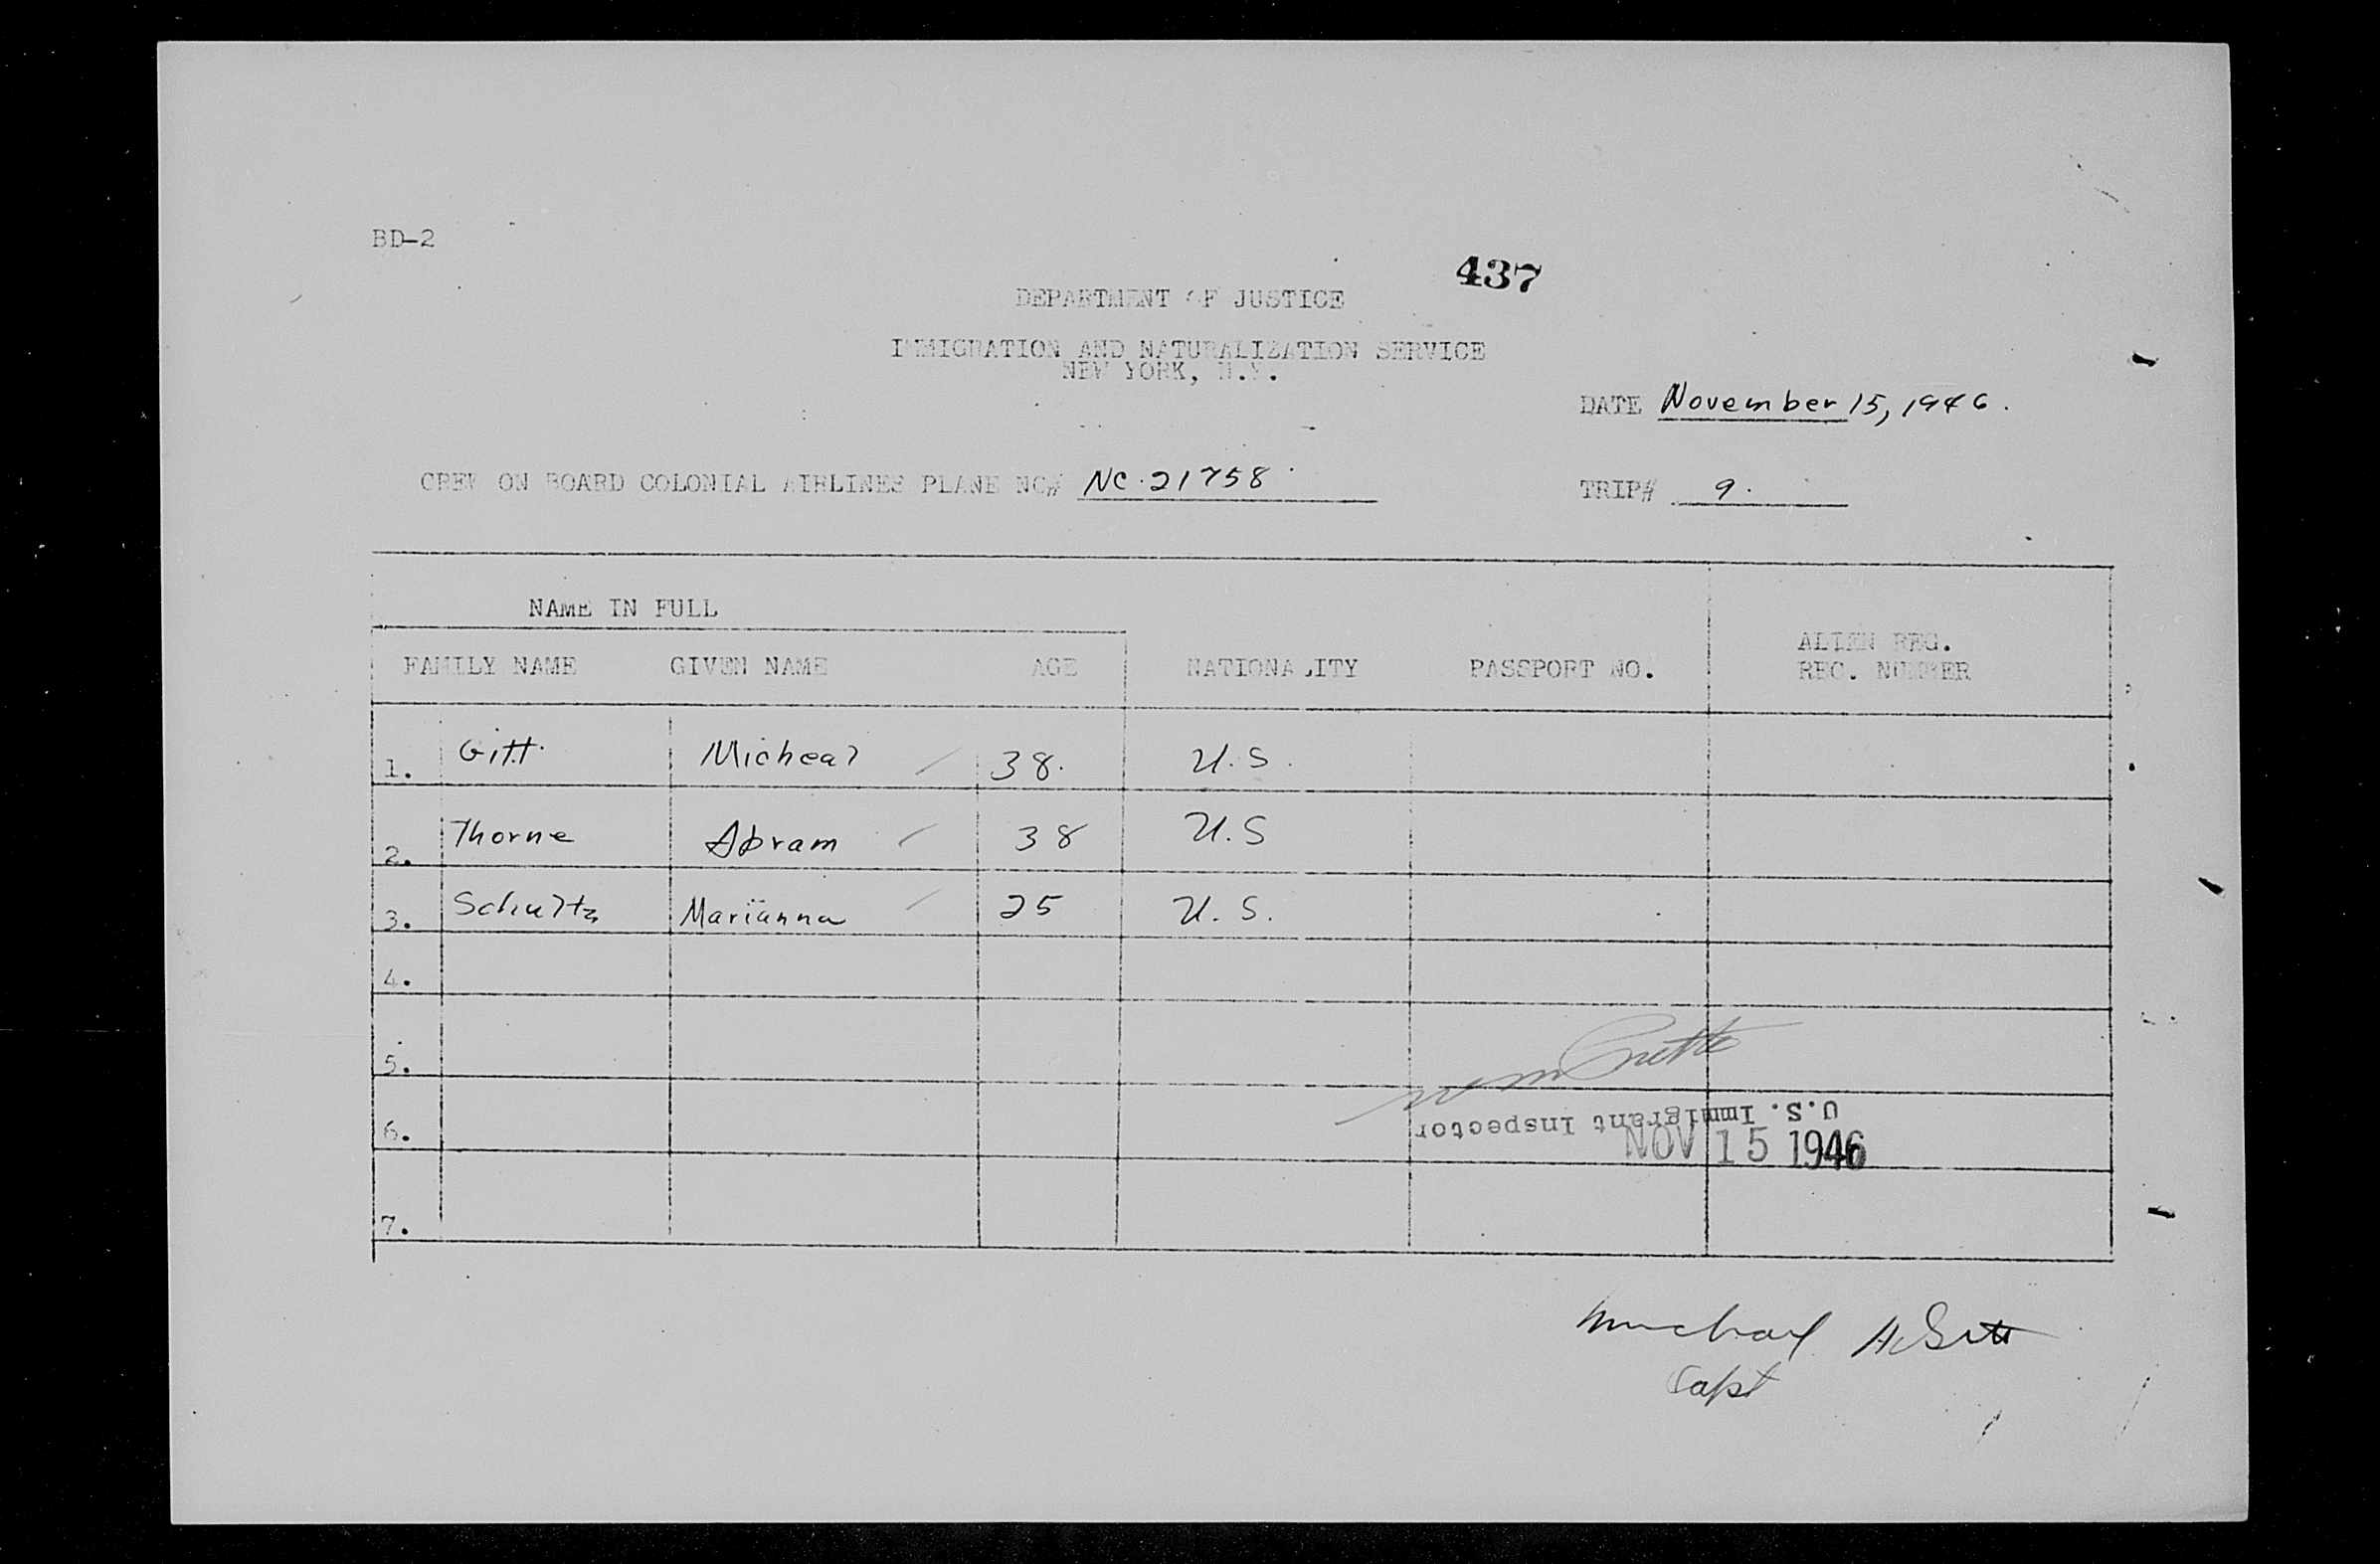 BD-2
437
DEPARTMENT OF JUSTICE
IMMIGRATION AND NATURALIZATION SERVICE
NEW YORK, N.Y.
DATE November 15, 1946.
CREW ON BOARD COLONIAL AIRLINES PLANE NC# NC.21758
TRIP# 9.
NAME IN FULL
FAMILY NAME GIVEN NAME AGE NATIONALITY PASSPORT NO. ALIEN REG. REC. NUMBER
1. Gitt Micheal 38. U.S.
2. Thorne Abram 38 U.S
3. Schultz Marianna 25 U.S.
4.
5.
6.
U.S. Immigrant Inspector
NOV 15 1946
7.
Michael A Gitt
Capt